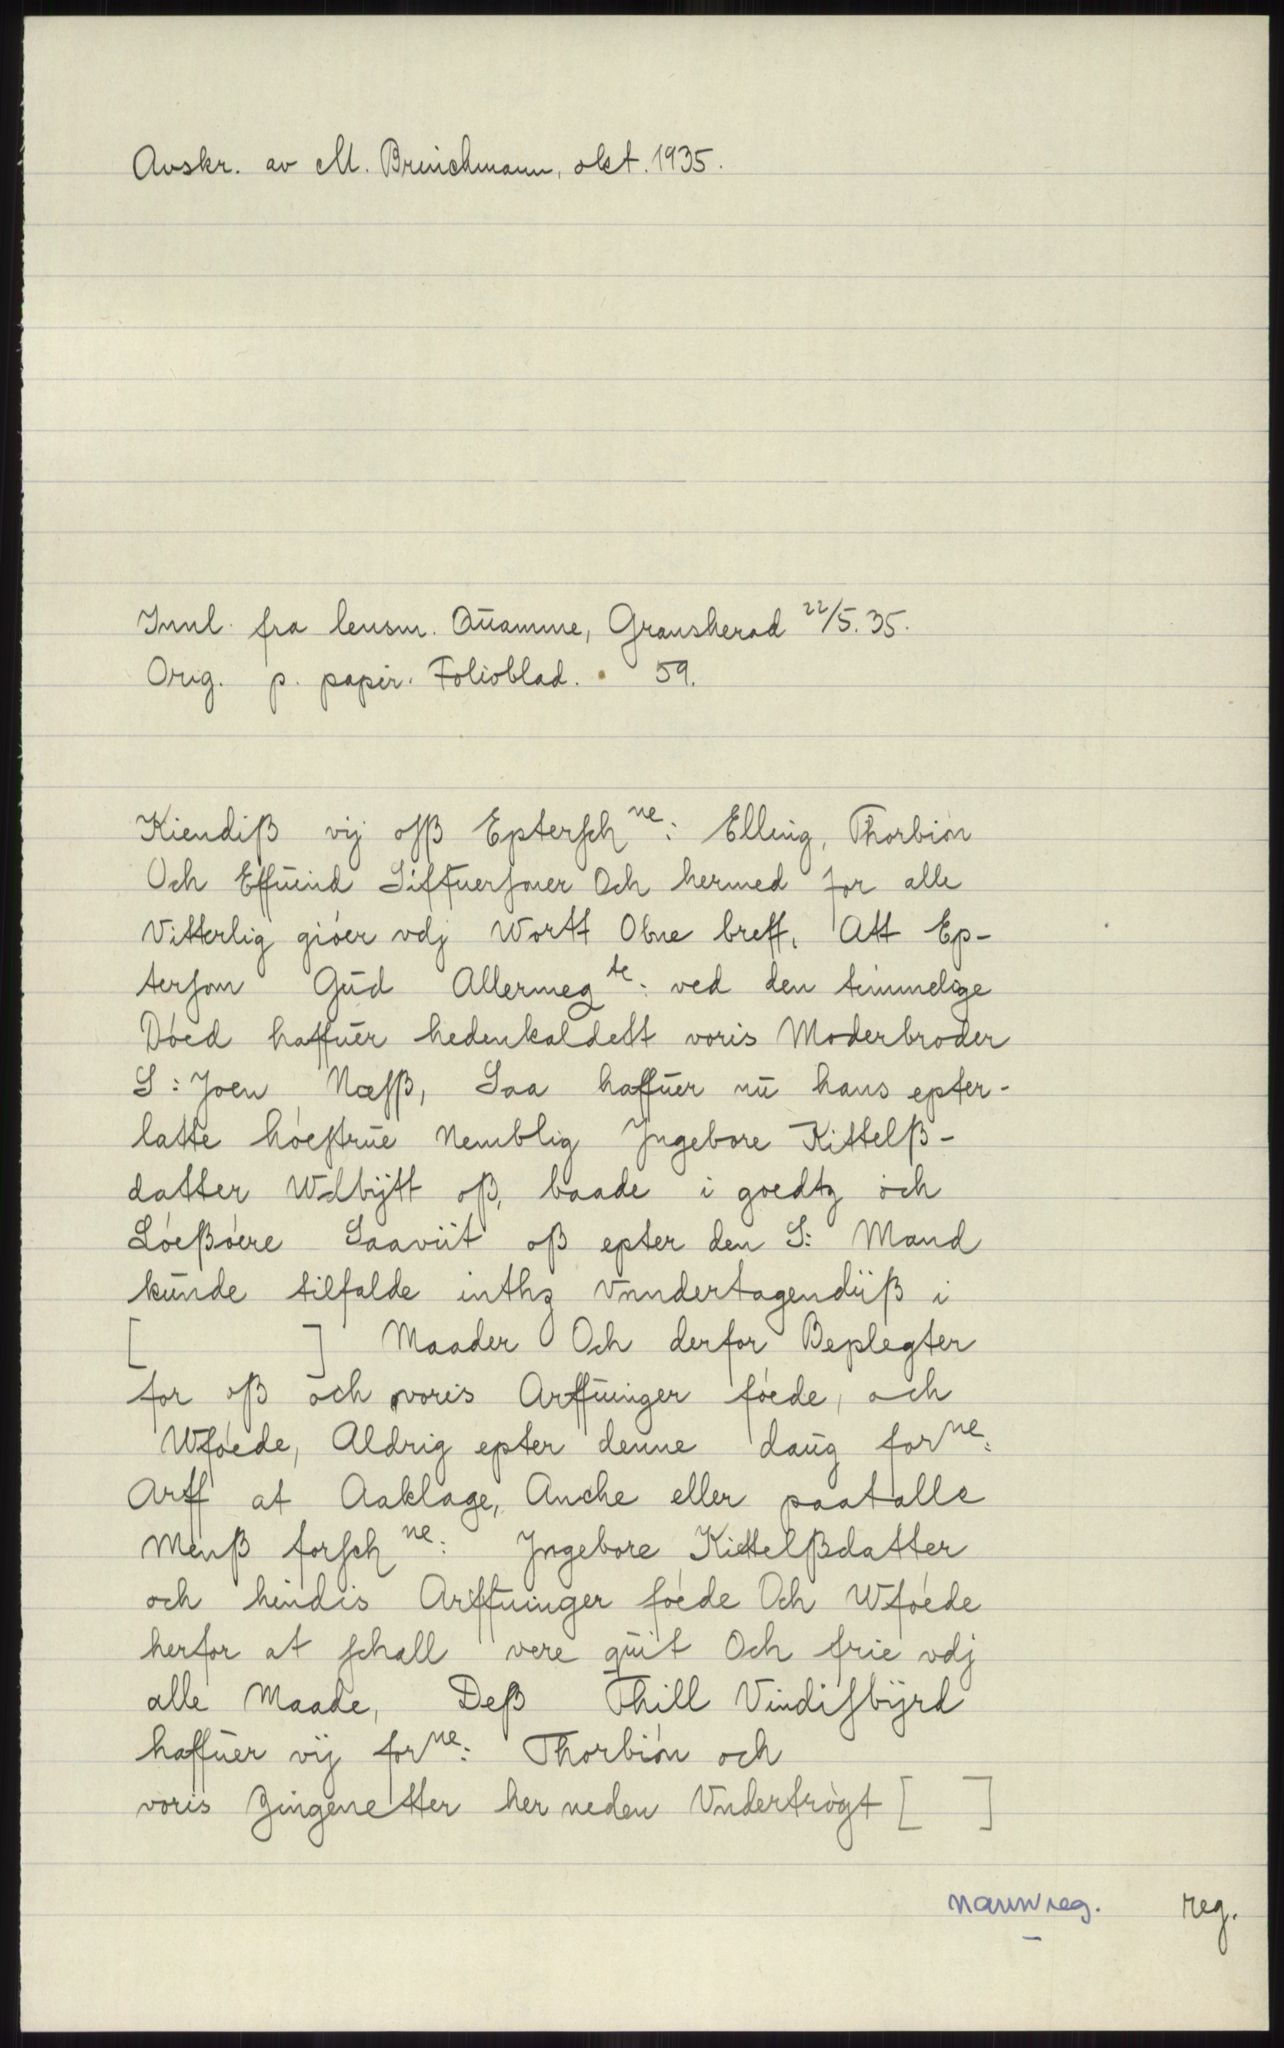 Avskr. av M. Brinchmann, okt. 1935.
Innl. fra lensm. Qŭamme, Gransherad 22/5. 35.
Orig. p. papir. Folioblad. 59.
Kiendiß vij oſß Epterſch ne: Elling, Thorbión
Och Effŭind Siffŭerſøner Och hermed for alle
Vitterlig gióer vdj Wortt Obne breff, Att Ep-
terſom Gŭd Allermeg te: ved den timmelige
Dóed haffŭer hedenkaldett voris Moderbroder
S: Joen Næſß, Saa haffŭer nŭ hans epter-
latte hóeſtrŭe Nemblig Jngebore Kittelß-
datter Wdbÿtt oß, baade i goedtz och
Lóeßóere Saavüt oß epter den S: Mand
kŭnde tilfalde inthz Vnndertagendüß i
[ ] Maader Och derfor Beplegter
for oß och voris Arffŭinger fóede, och
Wfóede, Aldrig epter denne daŭg for ne:
Arff at Aaklage, Anche eller paatalle
Menß forſch ne: Jngebore Kittelßdatter
och hindis Arffŭinger fóede Och Wfóede
herfor at ſchall vere qŭit Och frie vdj
alle Maade, Deß Thill Vindiſbÿrd
haffŭer vij for ne: Thorbión och
voris Zingenetter her neden Vndertrógt [ ]
navnreg. reg.